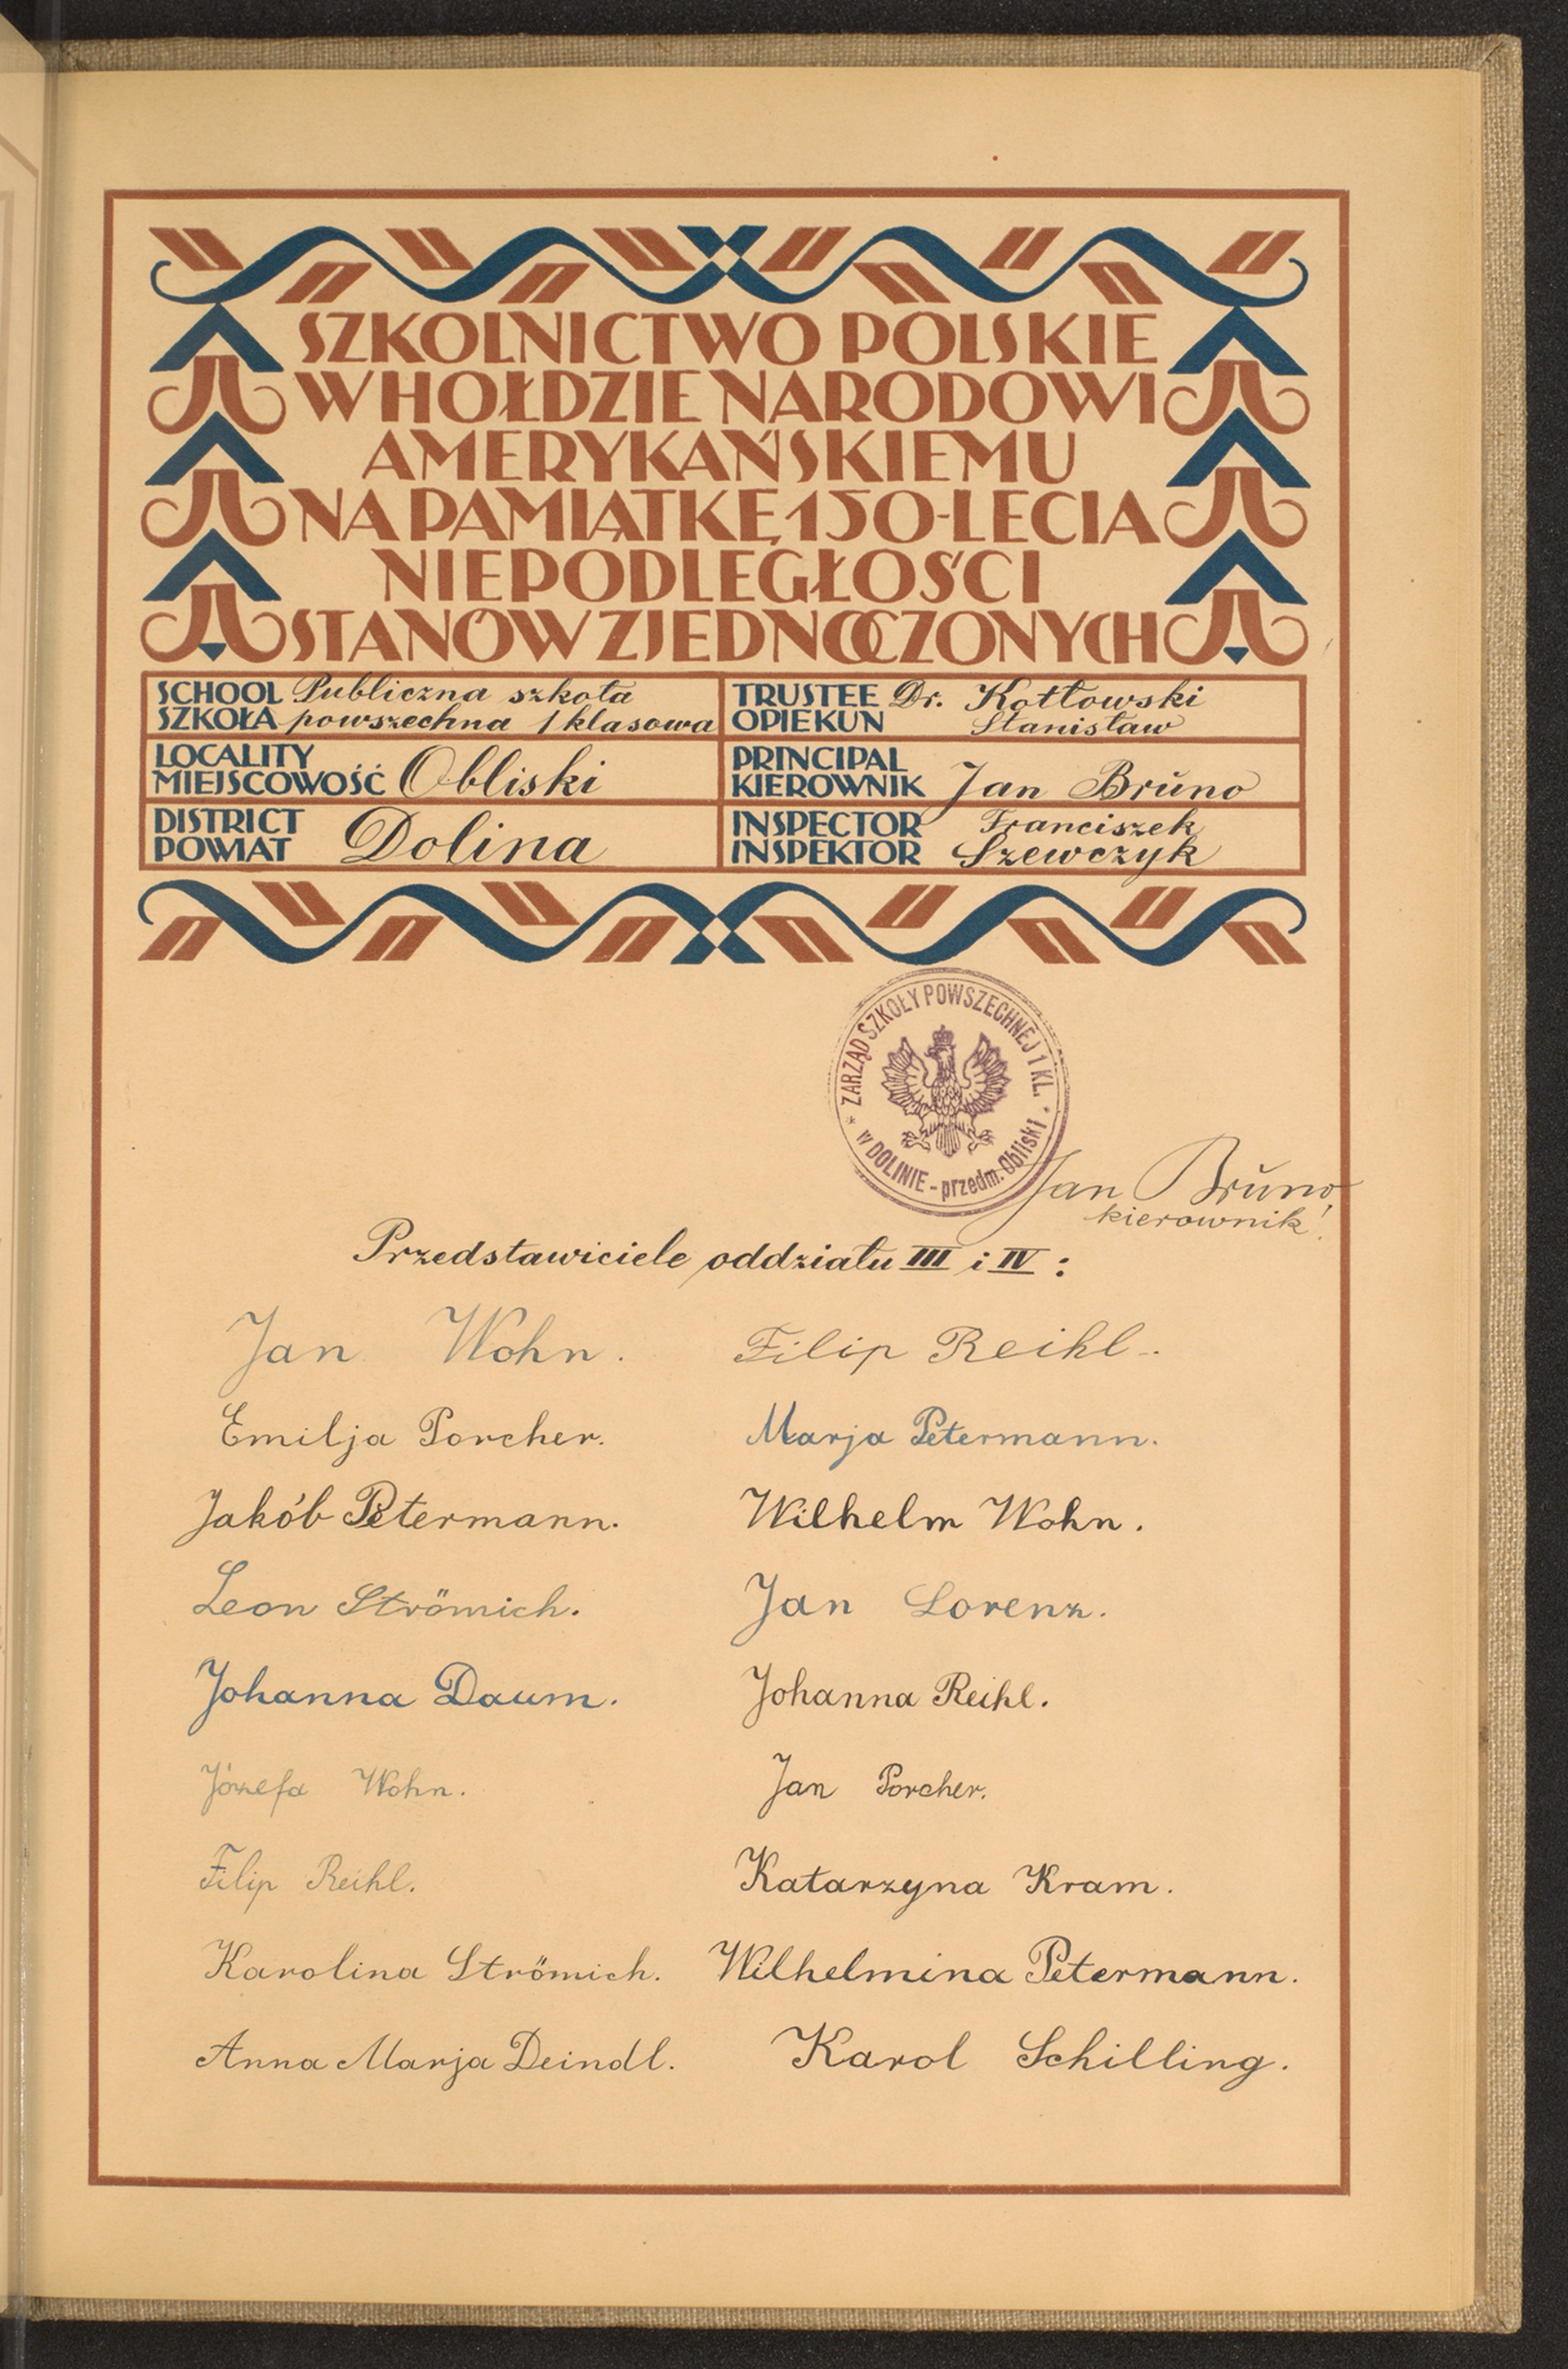 SZKOLNICTWO POLSKIE
W HOŁDZIE NARODOWI
AMERYKAŃSKIEMU
NA PAMIĄTKĘ 150-LECIA
NIEPODLEGŁOŚCI
STANÓW ZJEDNOCZONYCH
SCHOOL Publiczna szkoła
SZKOŁA powszechna 1 klasowa
TRUSTEE Dr. Kotłowski
OPIEKUN Stanisław
LOCALITY
MIEJSCOWOŚĆ Obliski
PRINCIPAL
KIEROWNIK Jan Brŭno
DISTRICT
POWIAT Dolina
INSPECTOR Franciszek
INSPEKTOR Szewczyk
* ZARZĄD SZKOŁY POWSZECHNEJ 1 KL.
w DOLINIE - przedm. Obliski
Jan Brŭno
kierownik!
Przedstawiciele oddziału III i IV :
Jan Wohn. Filip Reihl.
Emilja Porcher. Marja Petermann.
Jakób Petermann. Wilhelm Wohn.
Leon Strömich. Jan Lorenz.
Johanna Daum. Johanna Reihl.
Józefa Wohn. Jan Porcher.
Filip Reihl. Katarzyna Kram.
Karolina Strömich. Wilhelmina Petermann.
Anna Marja Deindl. Karol Schilling.